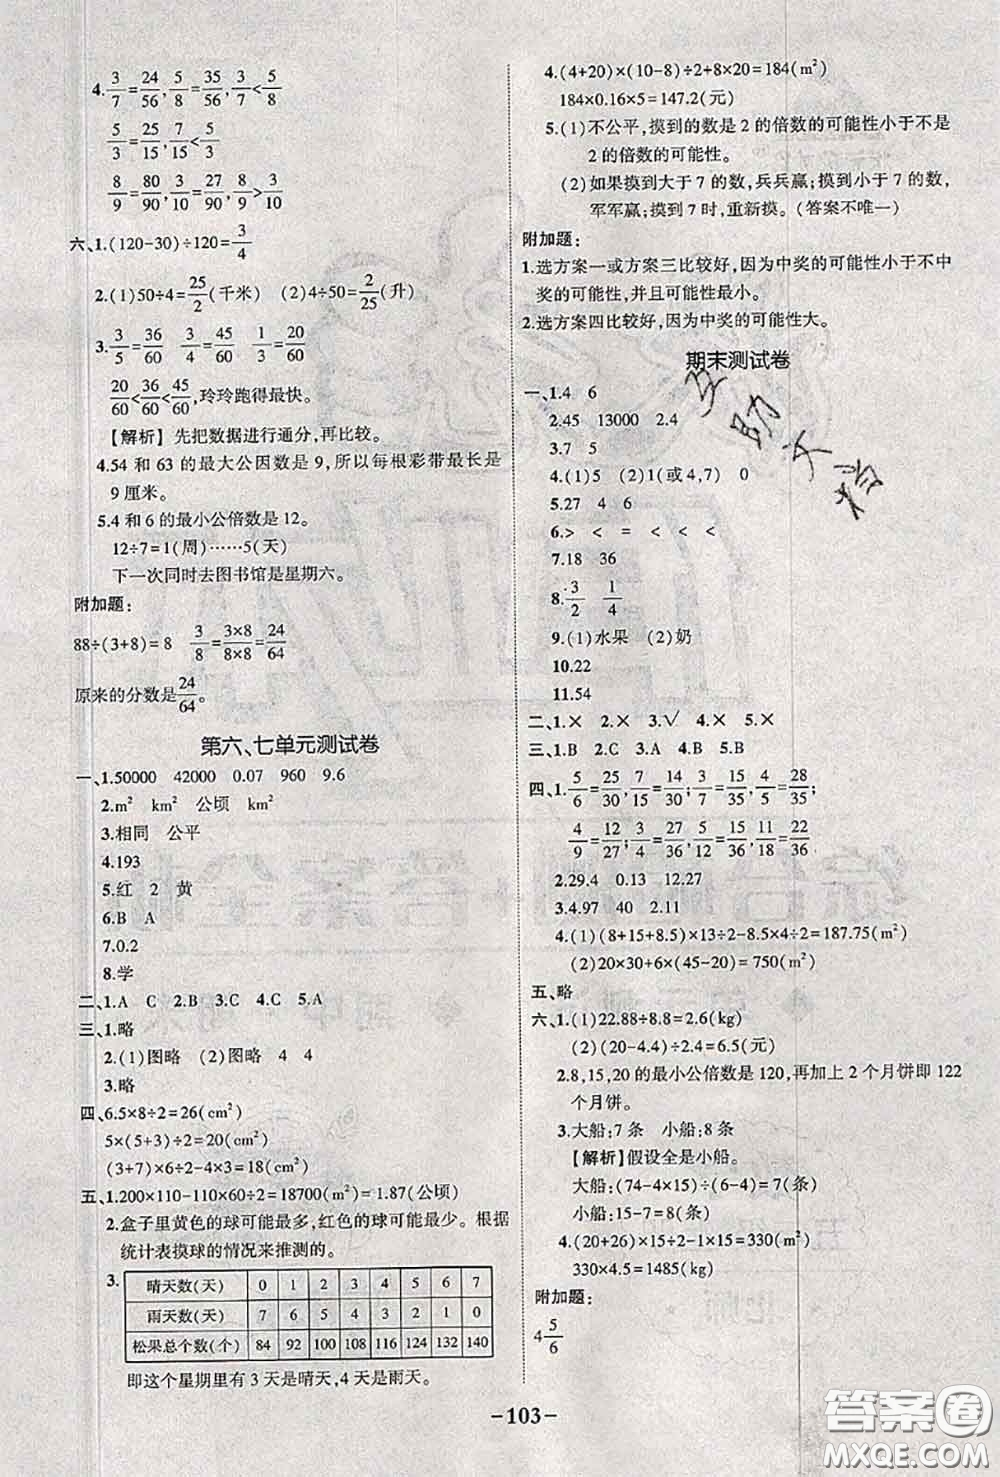 4. 3/7=24/56, 5/8=35/56, 3/7<5/8
5/3=25/15, 7/15=7/15, 7/15<5/3
8/9=80/90, 3/10=27/90, 8/9>3/10
六、1.(120-30)÷120=3/4
2.(1)50÷4=25/2(千米) (2)4÷50=2/25(升)
3. 3/5=36/60 3/4=45/60 1/3=20/60
20/60<36/60<45/60,玲玲跑得最快。
【解析】先把数据进行通分,再比较。
4.54 和 63 的最大公因数是 9,所以每根彩带最长是
9 厘米。
5.4 和 6 的最小公倍数是 12。
12÷7=1(周)……5(天)
下一次同时去图书馆是星期六。
附加题:
88÷(3+8)=8 3/8=3×8/8×8=24/64
原来的分数是24/64。
第六、七单元测试卷
一、1.50000 42000 0.07 960 9.6
2.m² km² 公顷 km²
3.相同 公平
4.193
5.红 2 黄
6.B A
7.0.2
8.学
二、1.A C 2.B 3.C 4.C 5.A
三、1.略
2.(1)图略 (2)图略 4 4
3.略
四、6.5×8÷2=26(cm²)
5×(5+3)÷2=20(cm²)
(3+7)×6÷2-4×3=18(cm²)
五、1.200×110-110×60÷2=18700(m²)=1.87(公顷)
2.盒子里黄色的球可能最多,红色的球可能最少。根据
统计表摸球的情况来推测的。
3.
晴天数(天) 0 1 2 3 4 5 6 7
雨天数(天) 7 6 5 4 3 2 1 0
松果总个数(个) 84 92 100 108 116 124 132 140
即这个星期里有 3 天是晴天,4 天是雨天。
4.(4+20)×(10-8)÷2+8×20=184(m²)
184×0.16×5=147.2(元)
5.(1)不公平,摸到的数是 2 的倍数的可能性小于不是
2 的倍数的可能性。
(2)如果摸到大于 7 的数,兵兵赢;摸到小于 7 的数,
军军赢;摸到 7 时,重新摸。(答案不唯一)
附加题:
1.选方案一或方案三比较好,因为中奖的可能性小于不中
奖的可能性,并且可能性最小。
2.选方案四比较好,因为中奖的可能性大。
期末测试卷
一、1.4 6
2.45 13000 2.4
3.7 5
4.(1)5 (2)1(或 4,7) 0
5.27 4
6.> < = < < <
7.18 36
8. 3/2 1/4
9.(1)水果 (2)奶
10.22
11.54
二、1.× 2.× 3.√ 4.× 5.×
三、1.B 2.C 3.A 4.B 5.B
四、1. 5/6=25/30, 7/15=14/30; 3/7=15/35, 4/5=28/35;
4/9=12/27, 3/4=27/36; 5/12=15/36, 11/18=22/36
2.29.4 0.13 12.27
3.4.97 40 2.11
4.(1)(8+15+8.5)×13÷2-8.5×4÷2=187.75(m²)
(2)20×30+6×(45-20)=750(m²)
五、略
六、1.(1)22.88÷8.8=2.6(kg)
(2)(20-4.4)÷2.4=6.5(元)
2.8,15,20 的最小公倍数是 120,再加上 2 个月饼即 122
个月饼。
3.大船:7 条 小船:8 条
【解析】假设全是小船。
大船:(74-4×15)÷(6-4)=7(条)
小船:15-7=8(条)
4.(20+26)×15÷2-1×15=330(m²)
330×4.5=1485(kg)
附加题:
4 5/6
-103-
答案圈
MXQE.COM